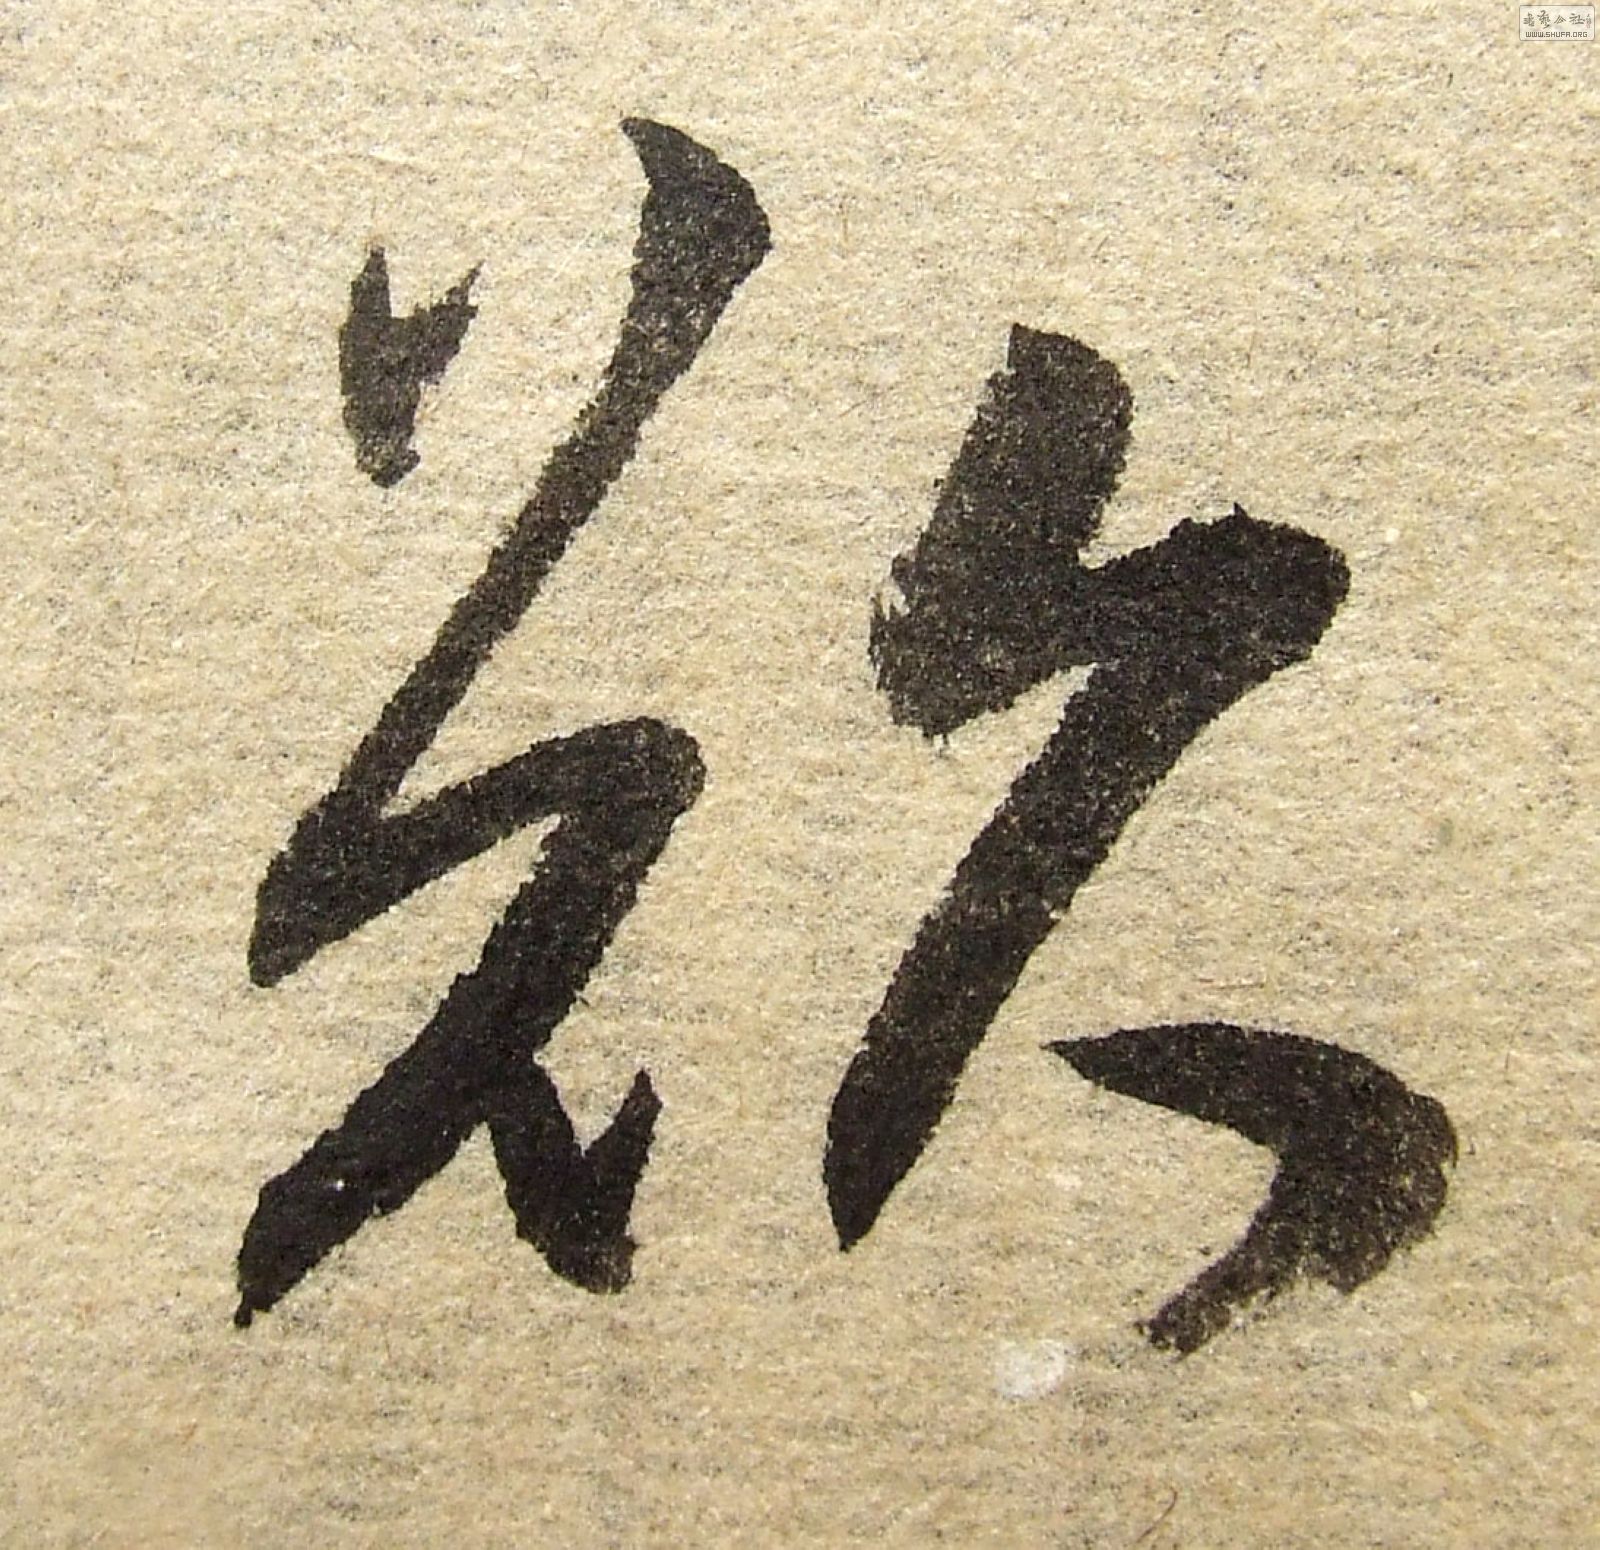 书艺公社
WWW.SHUFA.ORG
欲